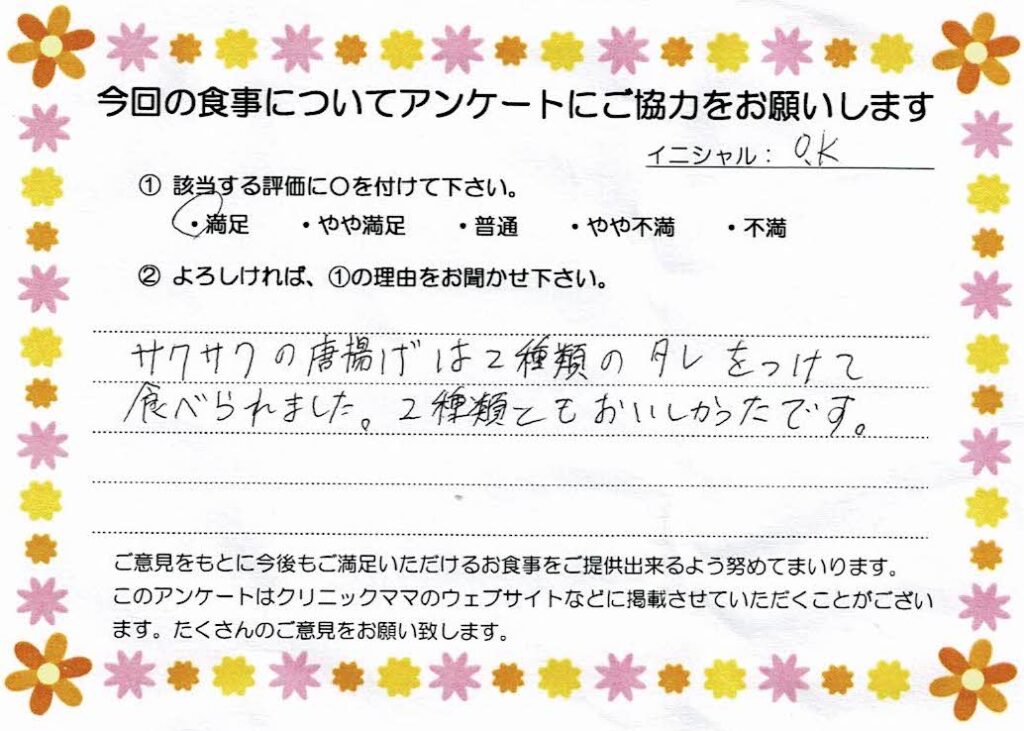 今回の食事についてアンケートにご協力をお願いします
イニシャル： O.K
① 該当する評価に〇を付けて下さい。
・満足 ・やや満足 ・普通 ・やや不満 ・不満
② よろしければ、①の理由をお聞かせ下さい。
サクサクの唐揚げは2種類のタレをつけて
食べられました。2種類ともおいしかったです。
ご意見をもとに今後もご満足いただけるお食事をご提供出来るよう努めてまいります。
このアンケートはクリニックママのウェブサイトなどに掲載させていただくことがござい
ます。たくさんのご意見をお願い致します。